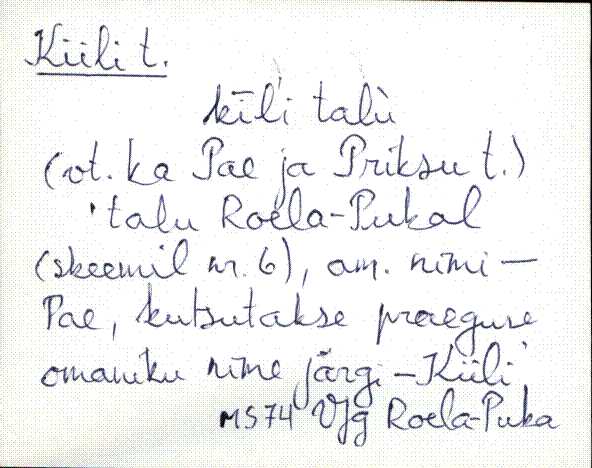 Kiili t.
kīl'i talù
(vt. ka Pae ja Priksu t.)
talu Roela-Pukal
(skeemil nr. 6), am. nimi —
Pae, kutsutakse praeguse
omaniku nime järgi – Kiili
MS74 VJg Roela-Puka